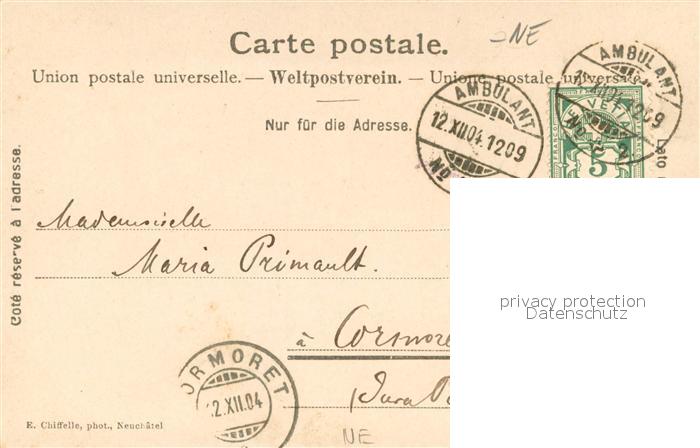 NE
Carte postale.
Union postale universelle. — Weltpostverein. — Unione postale universale
Nur für die Adresse.
AMBULANT
12.XII.04.1209
No
AMBULANT
1209
No 2
VETIA
FRANCO
5
Lato
Côté réservé à l'adresse.
Mademoiselle
Maria Primault.
à Cormore
Jura
ORMORET
12.XII.04
E. Chiffelle, phot., Neuchâtel
NE
privacy protection
Datenschutz